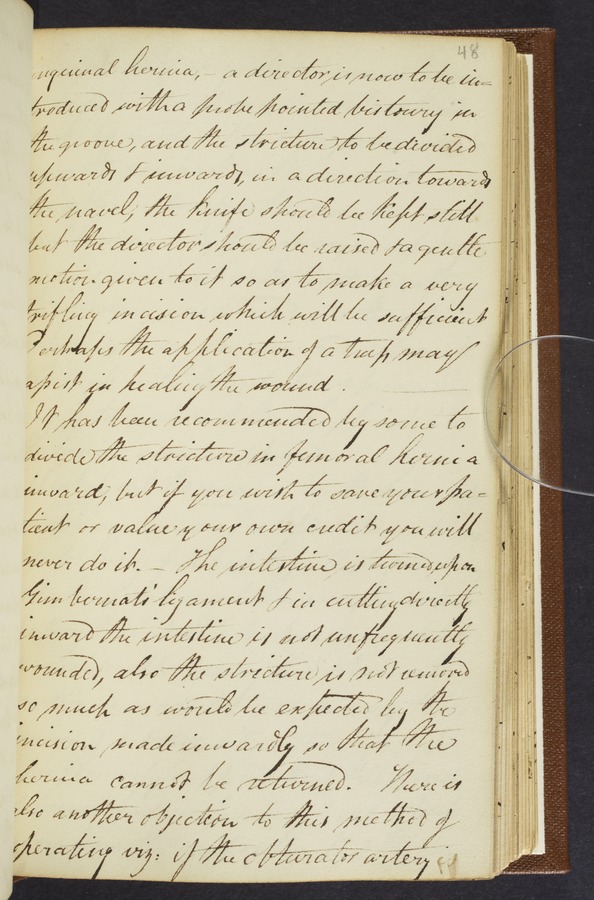 48
inguinal hernia, – a director is now to be in=
troduced with a probe pointed bistoury in
the groove, and the stricture to be divided
upwards & inwards, in a direction towards
the navel; the knife should be kept still
but the director should be raised & a gentle
motion given to it so as to make a very
trifling incision which will be sufficient
Perhaps the application of a trap may
assist in healing the wound.
It has been recommended by some to
divide the stricture in femoral hernia
inward; but if you wish to save your pa=
tient or value your own credit you will
never do it. – The intestine is turned upon
Gimbernats ligament & in cutting directly
inward the intestine is not unfrequently
wounded, also the stricture is not removed
so much as would be expected by the
incision made inwardly so that the
hernia cannot be returned. There is
also another objection to this method of
operating viz: if the obturator artery